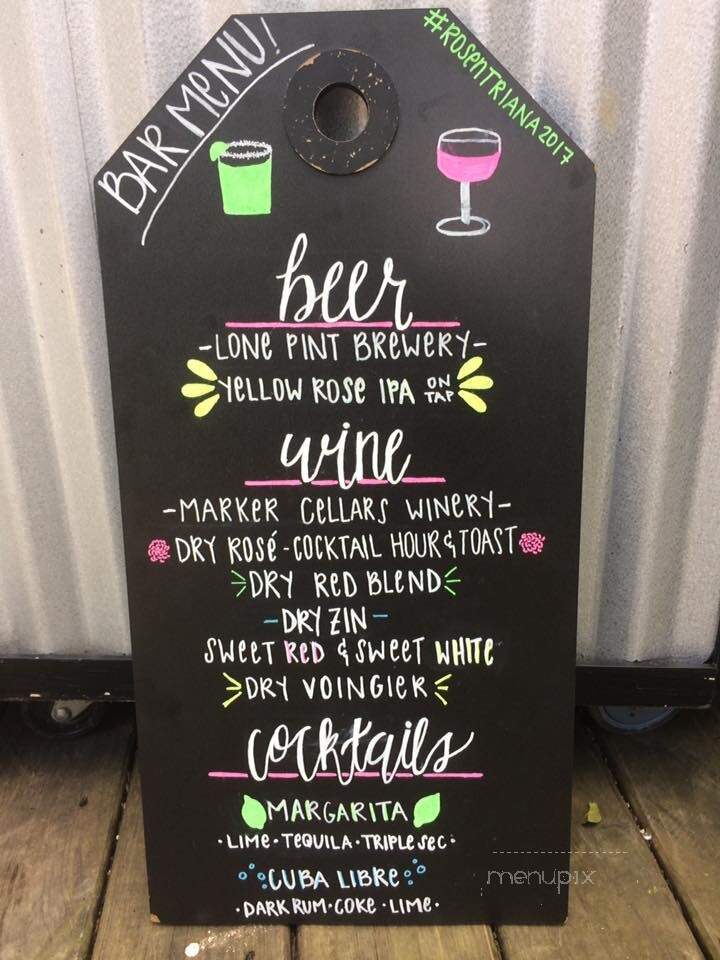 BAR MENU!
#ROSENTRIANA2017
beer
-LONE PINT BREWERY-
YELLOW ROSE IPA ON TAP
wine
-MARKER CELLARS WINERY-
DRY ROSé-COCKTAIL HOUR & TOAST
DRY RED BLEND
-DRY ZIN-
SWEET RED & SWEET WHITE
DRY VOINGIER
cocktails
MARGARITA
·LIME·TEQUILA·TRIPLE SEC·
CUBA LIBRE
·DARK RUM·COKE·LIME·
menupix